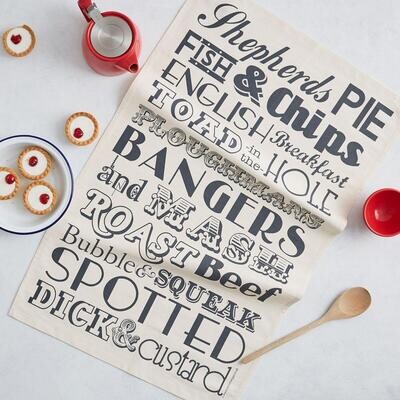 Shepherds PIE
FISH & Chips
ENGLISH Breakfast
TOAD -in the- HOLE
PLOUGHMANS
BANGERS
and MASH
ROAST Beef
Bubble & SQUEAK
SPOTTED
DICK & custard